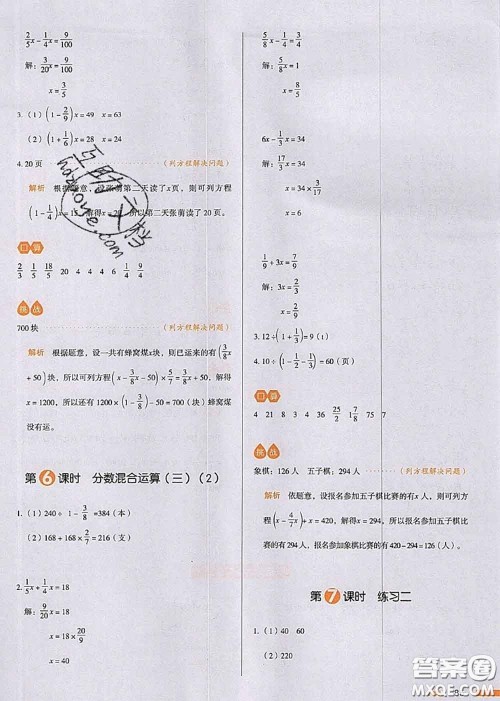 2/5x-1/4x=9/100
解：3/20x=9/100
x=3/5
3.（1）(1-2/9)x=49 x=63
（2）(1+1/6)x=28 x=24
4. 20页 （列方程解决问题）
解析 根据题意，设张萌第二天读了x页，则可列方程
(1-1/4)x=15，解得x=20，所以第二天张萌读了20页。
口算
2/3 1/5 18/5 20 4 4 4 6 1/4 9/4
挑战
700块 （列方程解决问题）
解析 根据题意，设一共有蜂窝煤x块，则已运来的有(3/8x
+50)块，所以可列方程(x-3/8x-50)×5/7=3/8x+50，解得x
=1200，所以还有1200×(1-3/8)-50=700（块）蜂窝煤
没有运。
第6课时 分数混合运算（三）（2）
1.（1）240÷ 1-3/8=384（本）
（2）168+168×2/7=216（支）
2. 1/5x+1/4x=18
解：9/20x=18
x=18×20/9
x=40
5/8x-1/4x=1
解：5/8x=1
x=8/5
6x-1/3x=34
解：17/3x=34
x=34×3/17
x=6
1/9+3x=7/9
解：3x=2/3
x=2/9
3. 12÷(1+1/3)=9（t）
4. 10÷(1-1/2-1/3)=60（页）
口算
4 21 8 3 4/3 16/3 25/2 18/7 75 7
挑战
象棋：126人 五子棋：294人 （列方程解决问题）
解析 依题意，设报名参加五子棋比赛的有x人，则可列
方程(x-4/7x)+x=420，解得x=294，所以报名参加五子棋比
赛的有294人，报名参加象棋比赛的有420-294=126（人）。
第7课时 练习二
1.（1）40 60
（2）220
答案圈
MXQE.COM